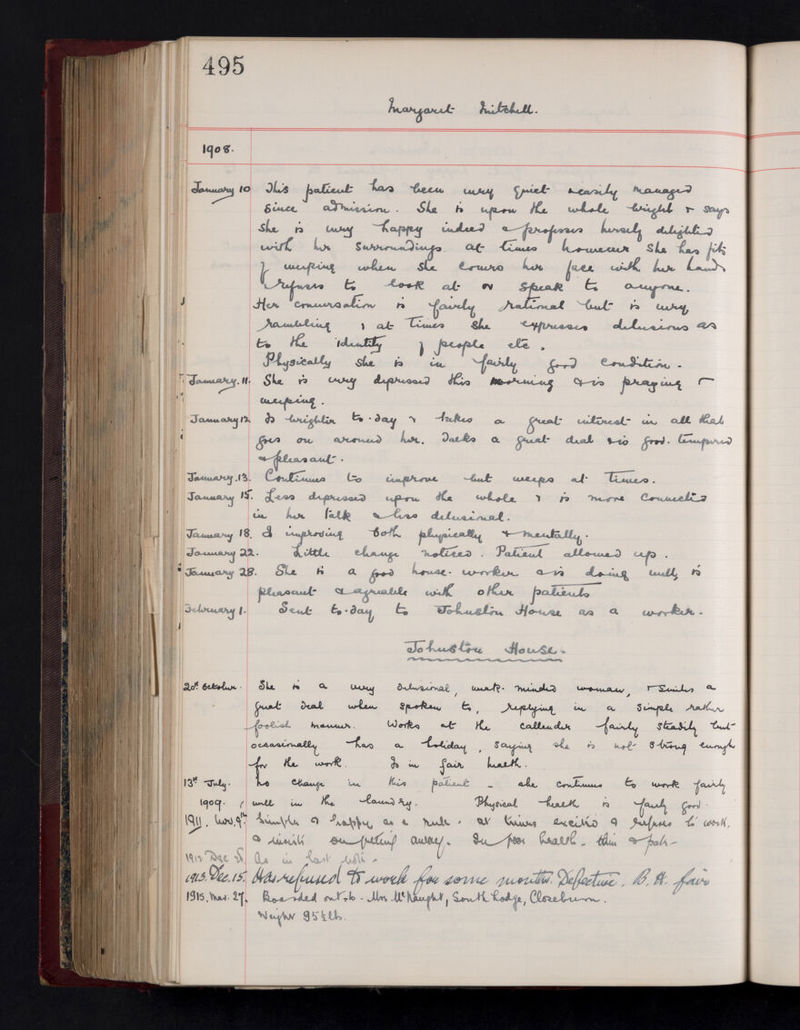 495
Margaret Mitchell.
1908.
January 10 This patient has been very quiet & easily managed
since admission. She is upon the whole bright & says
she is very happy indeed & professes herself delighted
with her surroundings. At times however she has fits
of weeping when she covers her face with her hands
& refuses to look at or speak to anyone.
Her conversation is fairly rational but is very
rambling, & at times she expresses delusions as
to the identity of people etc.
Physically she is in fairly good condition.
January. 11. She is very depressed this morning & is praying &
weeping.
January 12. Is brighter to-day & takes a great interest in all that
goes on around her. Talks a great deal & is good-tempered
& pleasant.
January. 13. Continues to improve but weeps at times.
January 15. Less depressed upon the whole & is more connected
in her talk & less delusional.
January 18. Is improving both physically & mentally.
January 22. Little change noticed. Patient allowed up.
January 28. She is a good house-worker & is doing well, is
pleasant & agreeable with other patients
February 1. Sent to-day to Johnston House as a worker.
Johnston House.
20th October. She is a very delusional, weak-minded woman, & smiles a
great deal when spoken to, replying in a simple rather
foolish manner. Works at the callender fairly steadily but
occasionally has a holiday, saying she is not strong enough
for the work. Is in fair health.
13th July. No change in this patient - she continues to work fairly
1909. well in the laundry. Physical health is fairly good.
1911. Nov. 9th Simple & happy as a rule. At times excited & refuses to work,
& insists on getting away. In poor health - thin & pale -
1912 Dec As in last note.
1913. Dec. 15. Has refused to work for some months. Defective. B. H. fair
1915, Mar. 27. Boarded out to - Mrs McNaught, South Lodge, Closeburn.
Weight 95½ lbs.